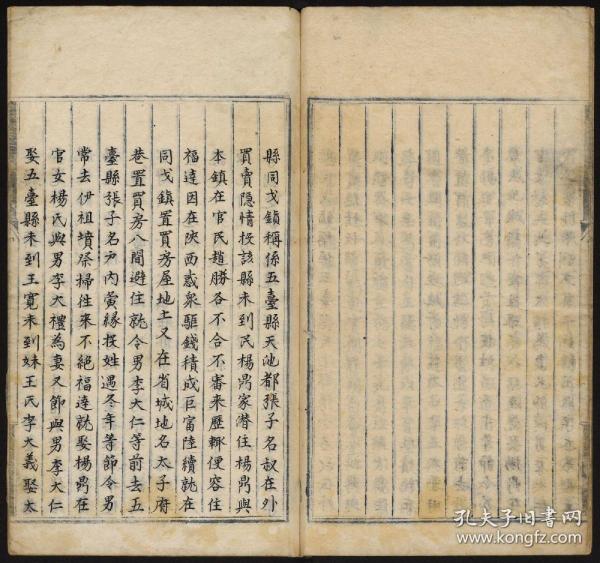 縣同戈鎮稱係五臺縣天池都張子名叔在外
買賣隱情投該縣未到民楊鼎家潛住楊鼎與
本鎮在官民趙勝各不合不審來歷輒便容住
福達因在陝西惑衆驅錢積成巨富陸續就在
同戈鎮置買房屋地土又在省城地名太子府
巷置買房八間避住就令男李大仁等前去五
臺縣張子名戶內夤緣投姓遇冬年等節令男
常去伊祖墳祭掃往來不絕福達就娶楊鼎在
官女楊氏與男李大禮為妻又節與男李大仁
娶五臺縣未到王寬未到妹王氏李大義娶太
孔夫子旧書网
www.kongfz.com